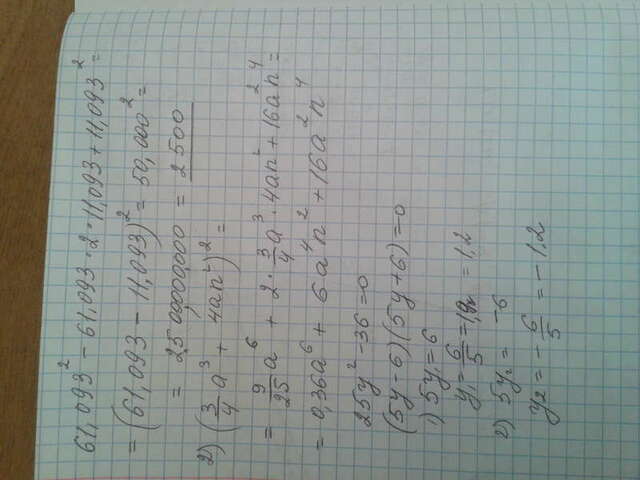 61,093² - 61,093 · 2 · 11,093 + 11,093² =
= (61,093 - 11,093)² = 50,000² =
= 2500,000,000 = 2500
2) (3/4 a³ + 4an²)² =
= 9/25 a⁶ + 2 · 3/4 a³ · 4an² + 16a²n⁴ =
= 0,36a⁶ + 6a⁴n² + 16a²n⁴
25y² - 36 = 0
(5y - 6)(5y + 6) = 0
1) 5y₁ = 6
y₁ = 6/5 = 1,2 = 1,2
2) 5y₂ = -6
y₂ = - 6/5 = - 1,2